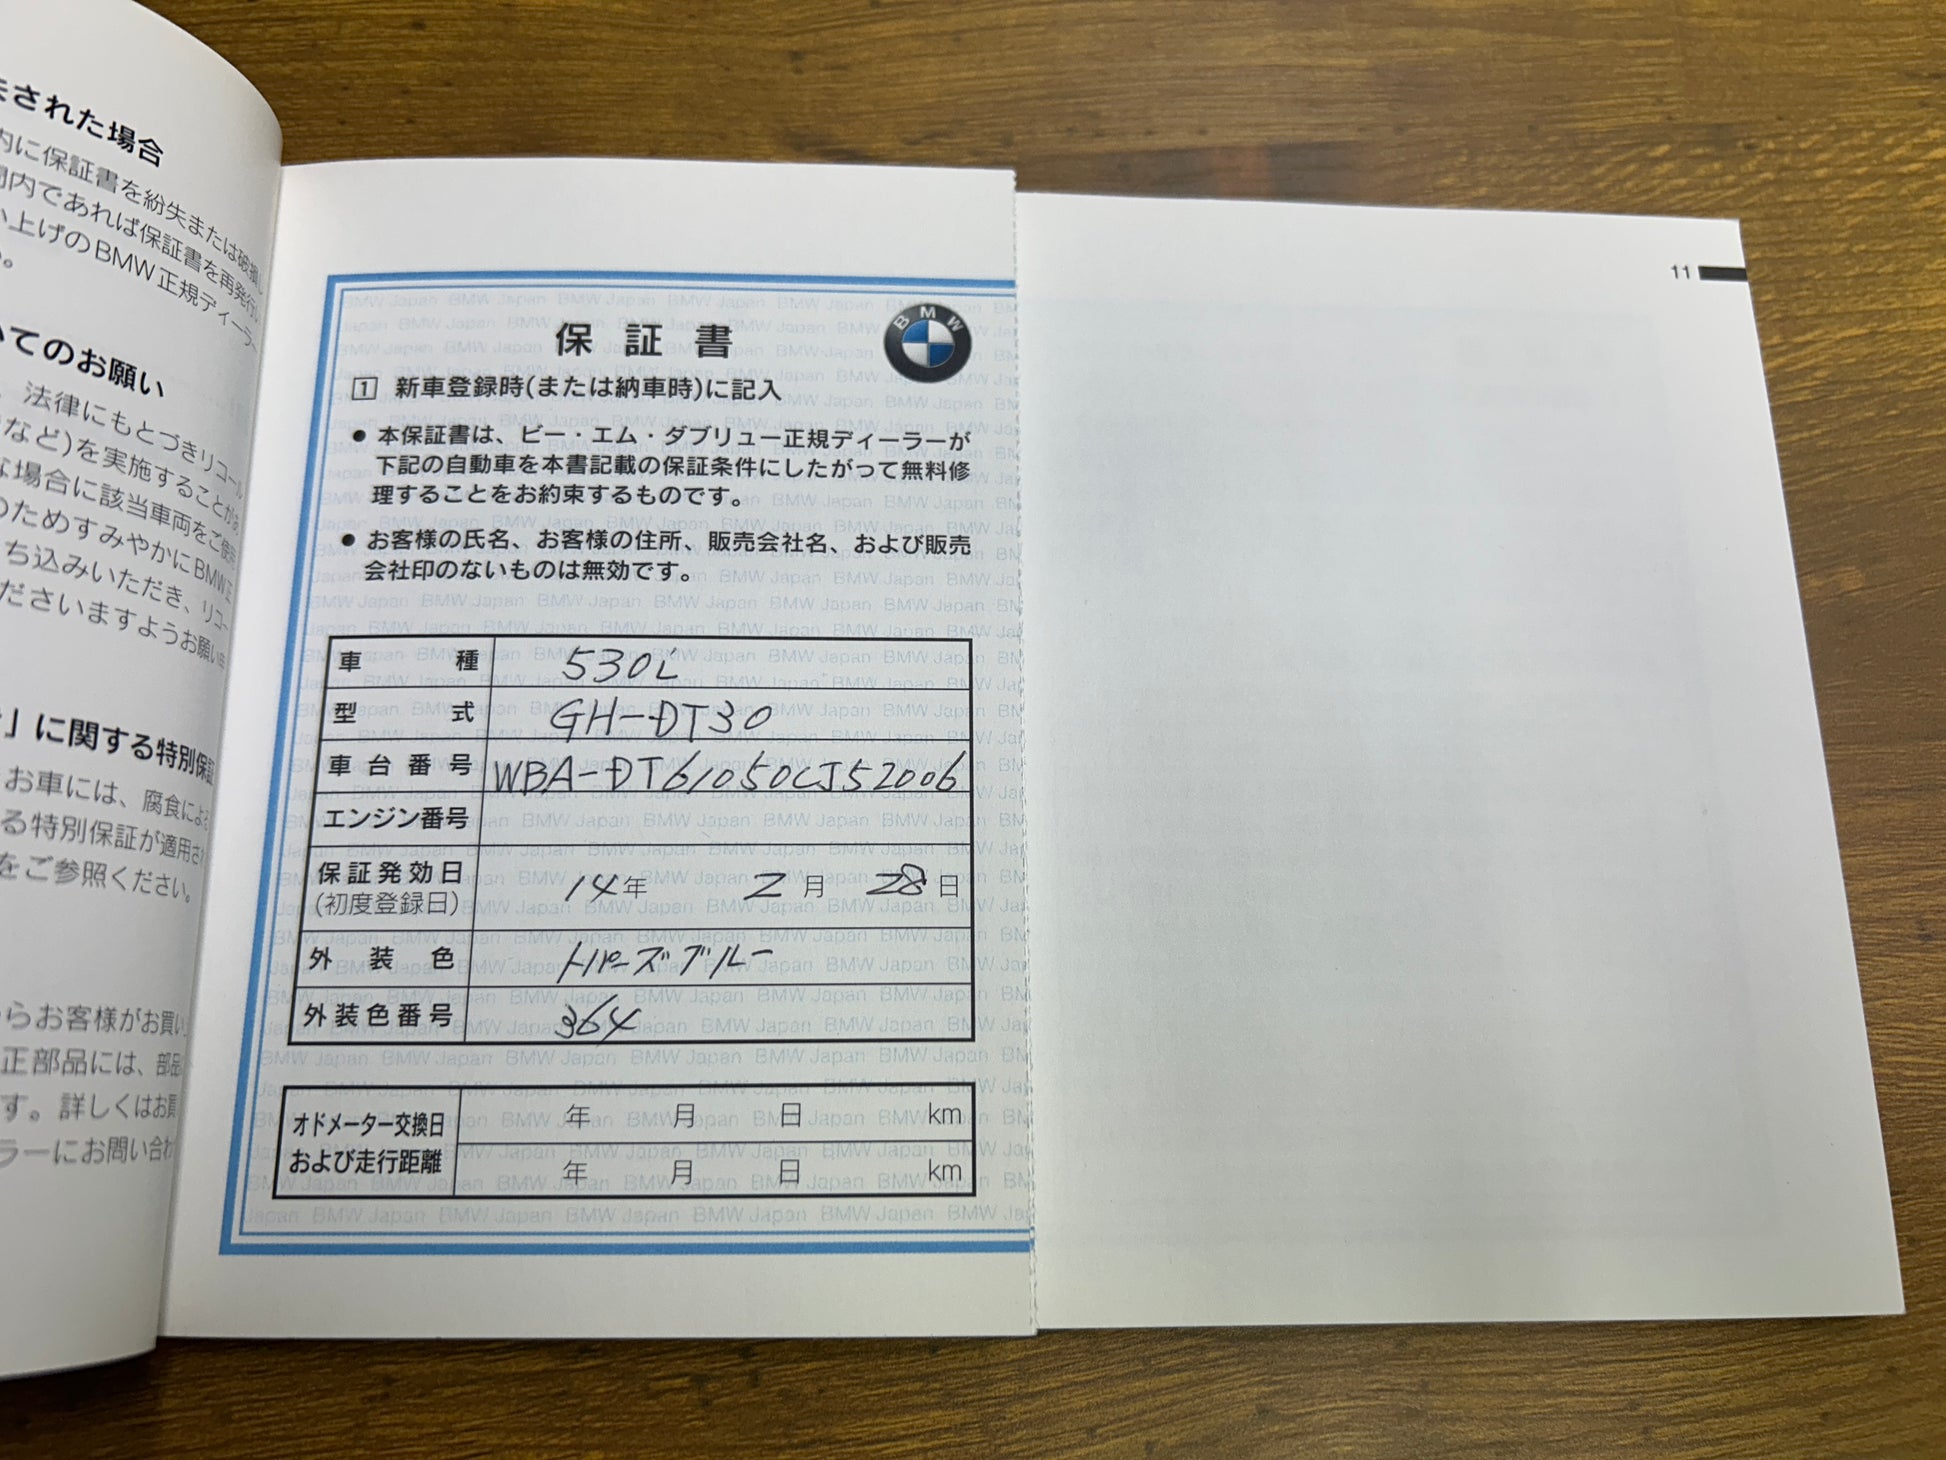 された場合
内に保証書を紛失または破損し
間内であれば保証書を再発行い
い上げのBMW正規ディーラー
。
いてのお願い
、法律にもとづきリコール
など)を実施することがあ
な場合に該当車両をご使用
のためすみやかにBMW正
ち込みいただき、リコー
ださいますようお願い
」に関する特別保証
お車には、腐食による
る特別保証が適用され
をご参照ください。
らお客様がお買い
正部品には、部品
す。詳しくはお買
ラーにお問い合わ
BMW
保証書
1 新車登録時(または納車時)に記入
● 本保証書は、ビー・エム・ダブリュー正規ディーラーが
下記の自動車を本書記載の保証条件にしたがって無料修
理することをお約束するものです。
● お客様の氏名、お客様の住所、販売会社名、および販売
会社印のないものは無効です。
車種 530i
型式 GH-DT30
車台番号 WBA-DT61050CJ52006
エンジン番号
保証発効日 14年 2月 28日
(初度登録日)
外装色 トパーズブルー
外装色番号 364
オドメーター交換日 年 月 日 km
および走行距離 年 月 日 km
11